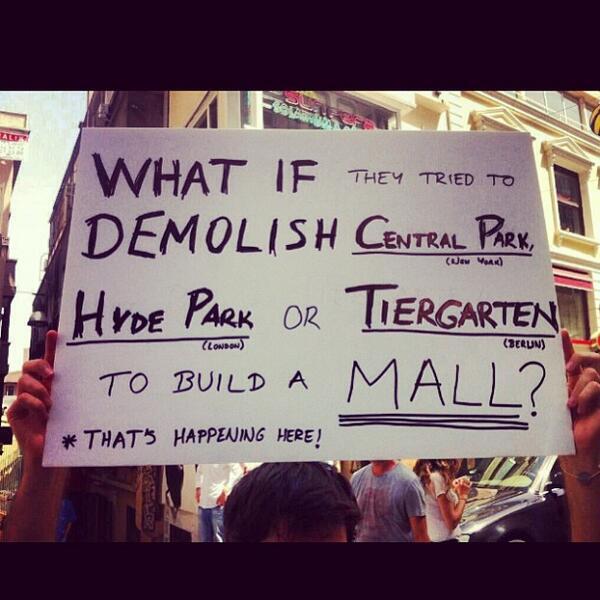 WHAT IF THEY TRIED TO
DEMOLISH CENTRAL PARK,
(NEW YORK)
HYDE PARK OR TIERGARTEN
(LONDON) (BERLIN)
TO BUILD A MALL?
* THAT'S HAPPENING HERE!